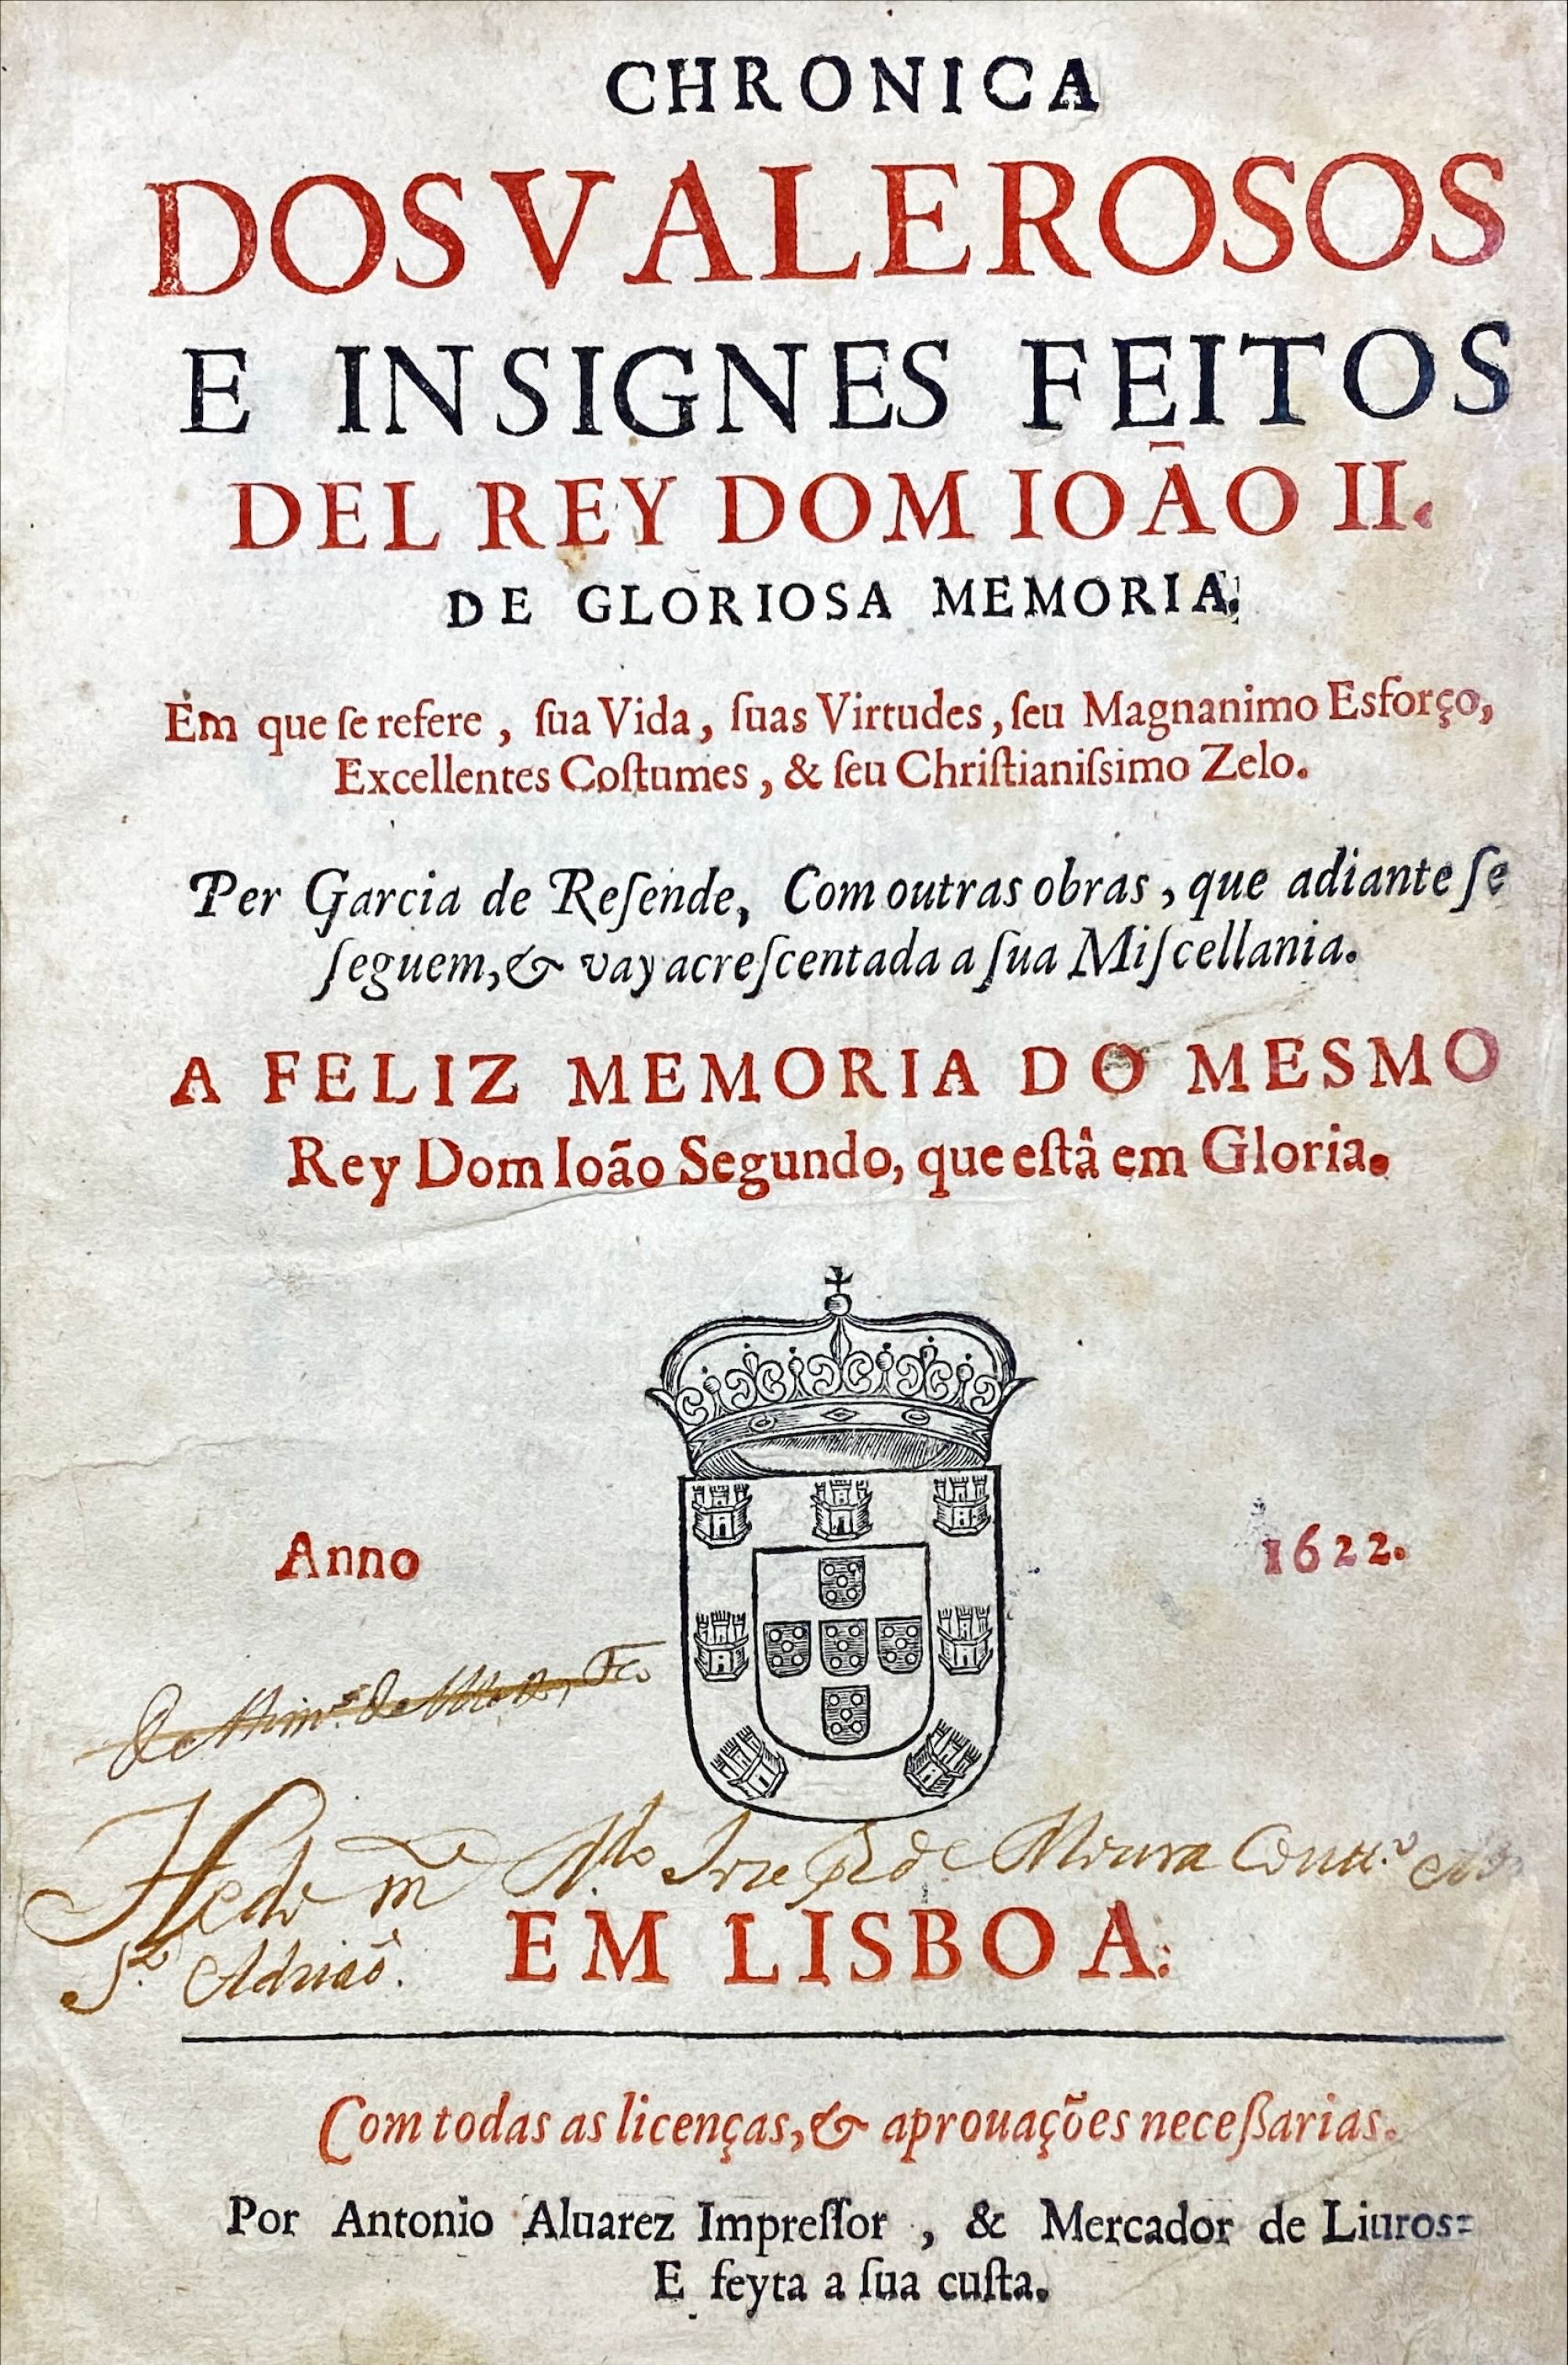 CHRONICA
DOS VALEROSOS
E INSIGNES FEITOS
DEL REY DOM IOÃO II.
DE GLORIOSA MEMORIA.
Em que ſe refere, ſua Vida, ſuas Virtudes, ſeu Magnanimo Esforço,
Excellentes Coſtumes, & ſeu Chriſtianiſsimo Zelo.
Per Garcia de Reſende, Com outras obras, que adiante ſe
ſeguem, & vay acreſcentada a ſua Miſcellania.
A FELIZ MEMORIA DO MESMO
Rey Dom Ioão Segundo, que eſtâ em Gloria.
Anno 1622.
de Moura
Sto Adrião.
EM LISBOA:
Com todas as licenças, & aprouações neceßarias.
Por Antonio Aluarez Impreſſor, & Mercador de Liuros
E feyta a ſua cuſta.